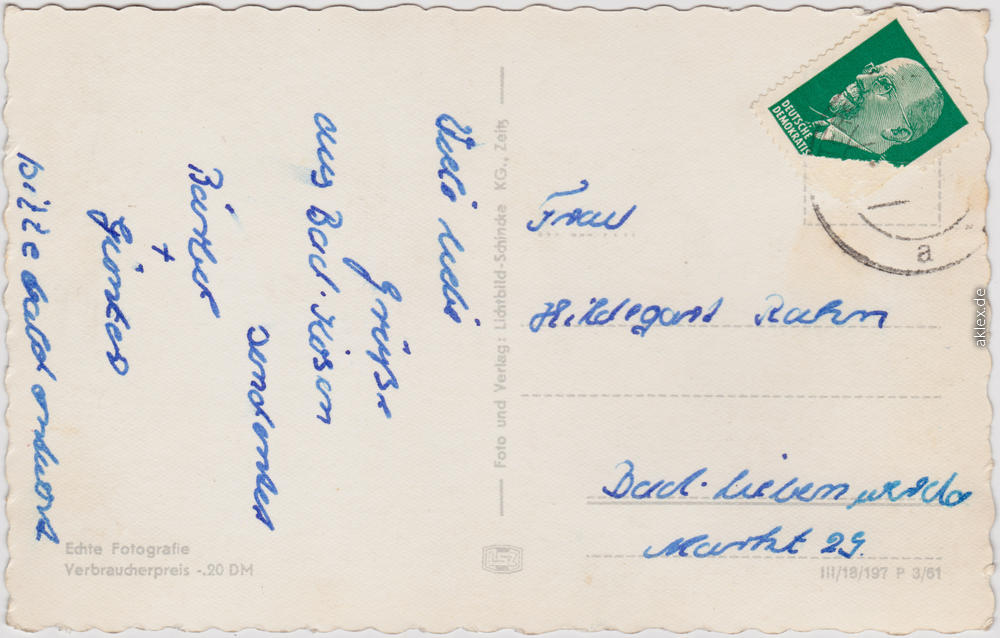 Viele liebe
Grüße
aus Bad-Kösen
senden
Bärbel
+
Günter
bitte bald antword
Echte Fotografie
Verbraucherpreis -.20 DM
Foto und Verlag: Lichtbild-Schincke KG., Zeitz
DEUTSCHE
DEMOKRATIS
a
Frau
Hildegard Rahn
Bad-Liebenwerda
Markt 29.
III/18/197 P 3/61
aklex.de